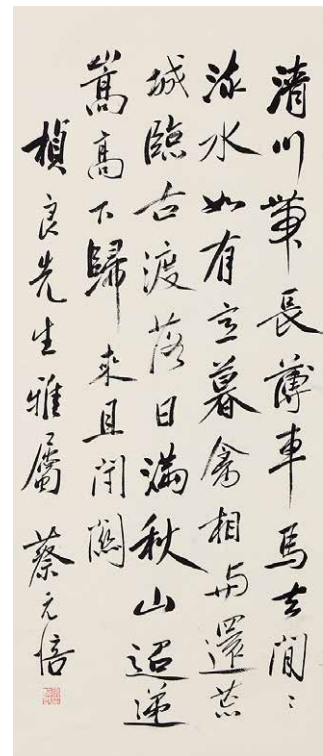 清川带長薄車馬去閒〻
流水如有意暮禽相与還荒
城臨古渡落日滿秋山迢递
嵩高下歸来且闭關
楨良先生雅屬 蔡元培